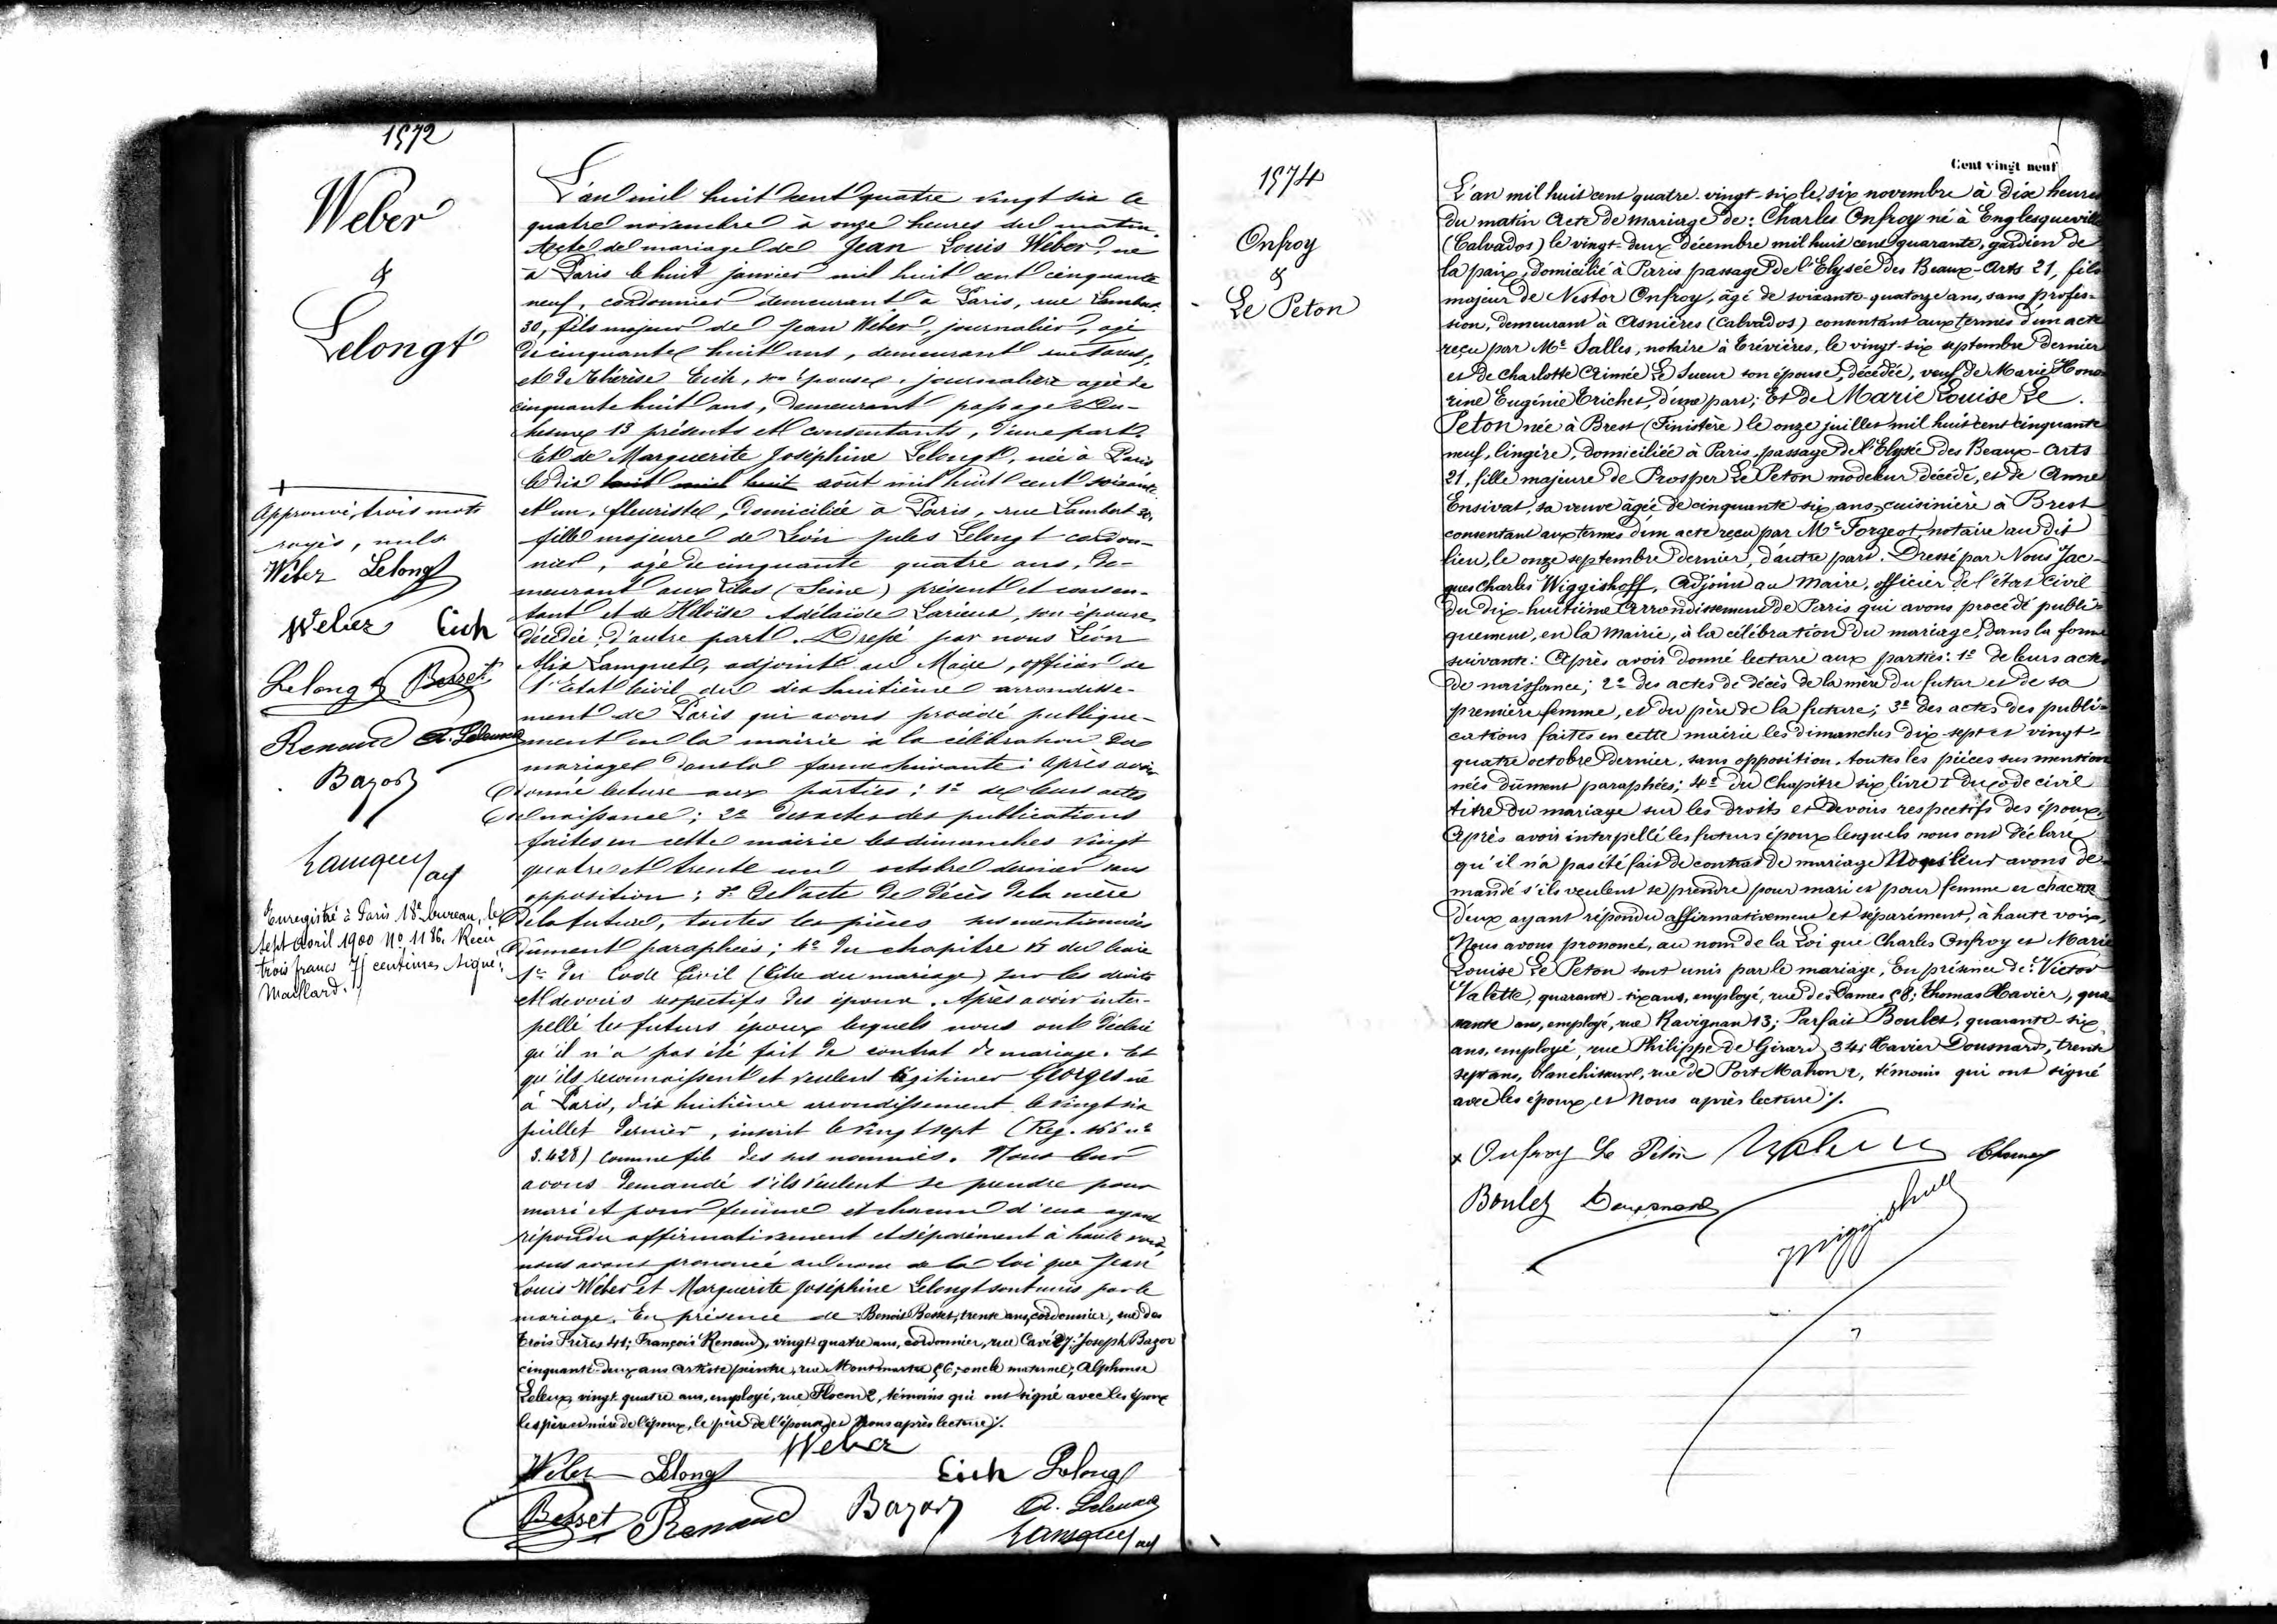 1572
Weber
&
Lelongt
Approuvé trois mots
rayés, nuls
Weber Lelongt
Weber Eich
Lelongt Besset
Renaud A. Leleux
Bazor
Lamquet
adj
Enregistré à Paris 18e bureau, le
sept avril 1900 No 1186. Reçu
trois francs 75 centimes signé:
Maillard.
L'an mil huit cent quatre vingt six le
quatre novembre à onze heures du matin.
Acte de mariage de Jean Louis Weber, né
à Paris le huit janvier mil huit cent cinquante
neuf, cordonnier demeurant à Paris, rue Lambert
30, fils majeur de Jean Weber, journalier, agé
de cinquante huit ans, demeurant
et de Thérèse Eich, son épouse, journalière agée de
cinquante huit ans, demeurant passage
13 présents et consentants, d'une part.
Et de Marguerite Joséphine Lelongt, née à Paris
le dix huit mil huit août mil huit cent soixante
et un, fleuriste, domiciliée à Paris, rue Lambert 30,
fille majeure de Léon Jules Lelongt cordon-
nier, agé de cinquante quatre ans, de-
meurant aux Lilas (Seine) présent et consen-
tant et de Héloïse Adélaïde Larieux, son épouse,
décédée; d'autre part. Dressé par nous Léon
Alix Lamquet, adjoint au Maire, officier de
l'Etat Civil du dix huitième arrondisse-
ment de Paris qui avons procédé publique-
ment en la mairie à la célébration du
mariage dans la forme suivante: après avoir
donné lecture aux parties: 1° de leurs actes
de naissance; 2° des actes des publications
faites en cette mairie les dimanches vingt
quatre et trente un octobre dernier sans
opposition; 3° de l'acte de décès de la mère
de la future, toutes les pièces sus mentionnées
dûment paraphées; 4° du chapitre VI du livre
1er du Code Civil (titre du mariage) sur les droits
et devoirs respectifs des époux. Après avoir inter-
pellé les futurs époux lesquels nous ont déclaré
qu'il n'a pas été fait de contrat de mariage. Et
qu'ils reconnaissent et veulent légitimer Georges né
à Paris, dix huitième arrondissement le vingt six
juillet dernier, inscrit le vingt sept (Reg. 166 no
3.428) comme fils des sus nommés. Nous leur
avons demandé s'ils veulent se prendre pour
mari et pour femme et chacun d'eux ayant
répondu affirmativement et séparément à haute voix,
nous avons prononcé au nom de la loi que Jean
Louis Weber et Marguerite Joséphine Lelongt sont unis par le
mariage. En présence de Benoît Besset, trente ans, cordonnier, rue des
Trois Frères 41; François Renaud, vingt quatre ans, cordonnier, rue Cavé 27; Joseph Bazor
cinquante-deux ans artiste peintre, rue Montmartre 56, oncle maternel; Alphonse
Leleux, vingt quatre ans, employé, rue Flocon 2, témoins qui ont signé avec les époux
les père et mère de l'époux, le père de l'épouse et Nous après lecture ./.
Weber
Weber Lelongt Eich Lelongt
Besset Renaud Bazor A. Leleux
Lamquet adj
1574
Onfroy
&
Le Peton
Cent vingt neuf
L'an mil huit cent quatre-vingt-six le six novembre à dix heures
du matin Acte de mariage de: Charles Onfroy né à Englesqueville
(Calvados) le vingt-deux décembre mil huit cent quarante, gardien de
la paix, domicilié à Paris passage de l'Elysée des Beaux-Arts 21, fils
majeur de Nestor Onfroy, âgé de soixante-quatorze ans, sans profes-
sion, demeurant à Asnières (Calvados) consentant aux termes d'un acte
reçu par Me Salles, notaire à Trévières, le vingt-six septembre dernier
et de Charlotte Aimée Le Sueur son épouse, décédée, veuf de Marie Hono-
rine Eugénie Trichet, d'une part; Et de Marie Louise Le
Peton née à Brest (Finistère) le onze juillet mil huit cent cinquante
neuf, lingère, domiciliée à Paris, passage de l'Elysée des Beaux-Arts
21, fille majeure de Prosper Le Peton modeleur décédé, et de Anne
Ensivat, sa veuve âgée de cinquante six ans, cuisinière à Brest
consentant aux termes d'un acte reçu par Me Forgeot notaire au dit
lieu, le onze septembre dernier, d'autre part. Dressé par Nous Jac-
ques Charles Wiggishoff, Adjoint au Maire, officier de l'état civil
du dix-huitième Arrondissement de Paris qui avons procédé publi-
quement, en la Mairie, à la célébration du mariage, dans la forme
suivante: Après avoir donné lecture aux parties: 1° de leurs actes
de naissance; 2° des actes de décès de la mère du futur et de sa
première femme, et du père de la future; 3° des actes des publi-
cations faites en cette mairie les dimanches dix-sept et vingt-
quatre octobre dernier, sans opposition. toutes les pièces sus mention-
nées dûment paraphées; 4° du Chapitre six, livre I du code civil
titre du mariage sur les droits et devoirs respectifs des époux.
Après avoir interpellé les futurs époux lesquels nous ont déclaré
qu'il n'a pas été fait de contrat de mariage Nous leur avons de-
mandé s'ils veulent se prendre pour mari et pour femme et chacun
d'eux ayant répondu affirmativement et séparément, à haute voix,
Nous avons prononcé, au nom de la Loi que Charles Onfroy et Marie
Louise Le Peton sont unis par le mariage, En présence de: Victor
Valette, quarante-six ans, employé, rue des Dames 58; Thomas Xavier, qua-
rante ans, employé, rue Ravignan 13; Parfait Boulet, quarante-six
ans, employé, rue Philippe de Girard 34; Xavier Dousnard, trente
sept ans, blanchisseur, rue de Port Mahon 2, témoins qui ont signé
avec les époux et Nous après lecture ./.
x Onfroy Le Peton Valette Thomas
Boulet Dousnard
Wiggishoff